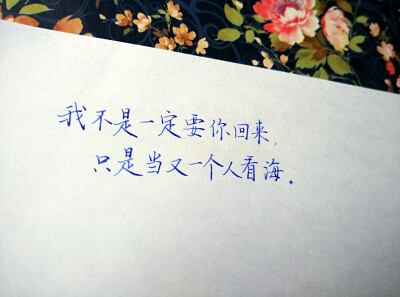 我不是一定要你回来,
只是当又一个人看海。